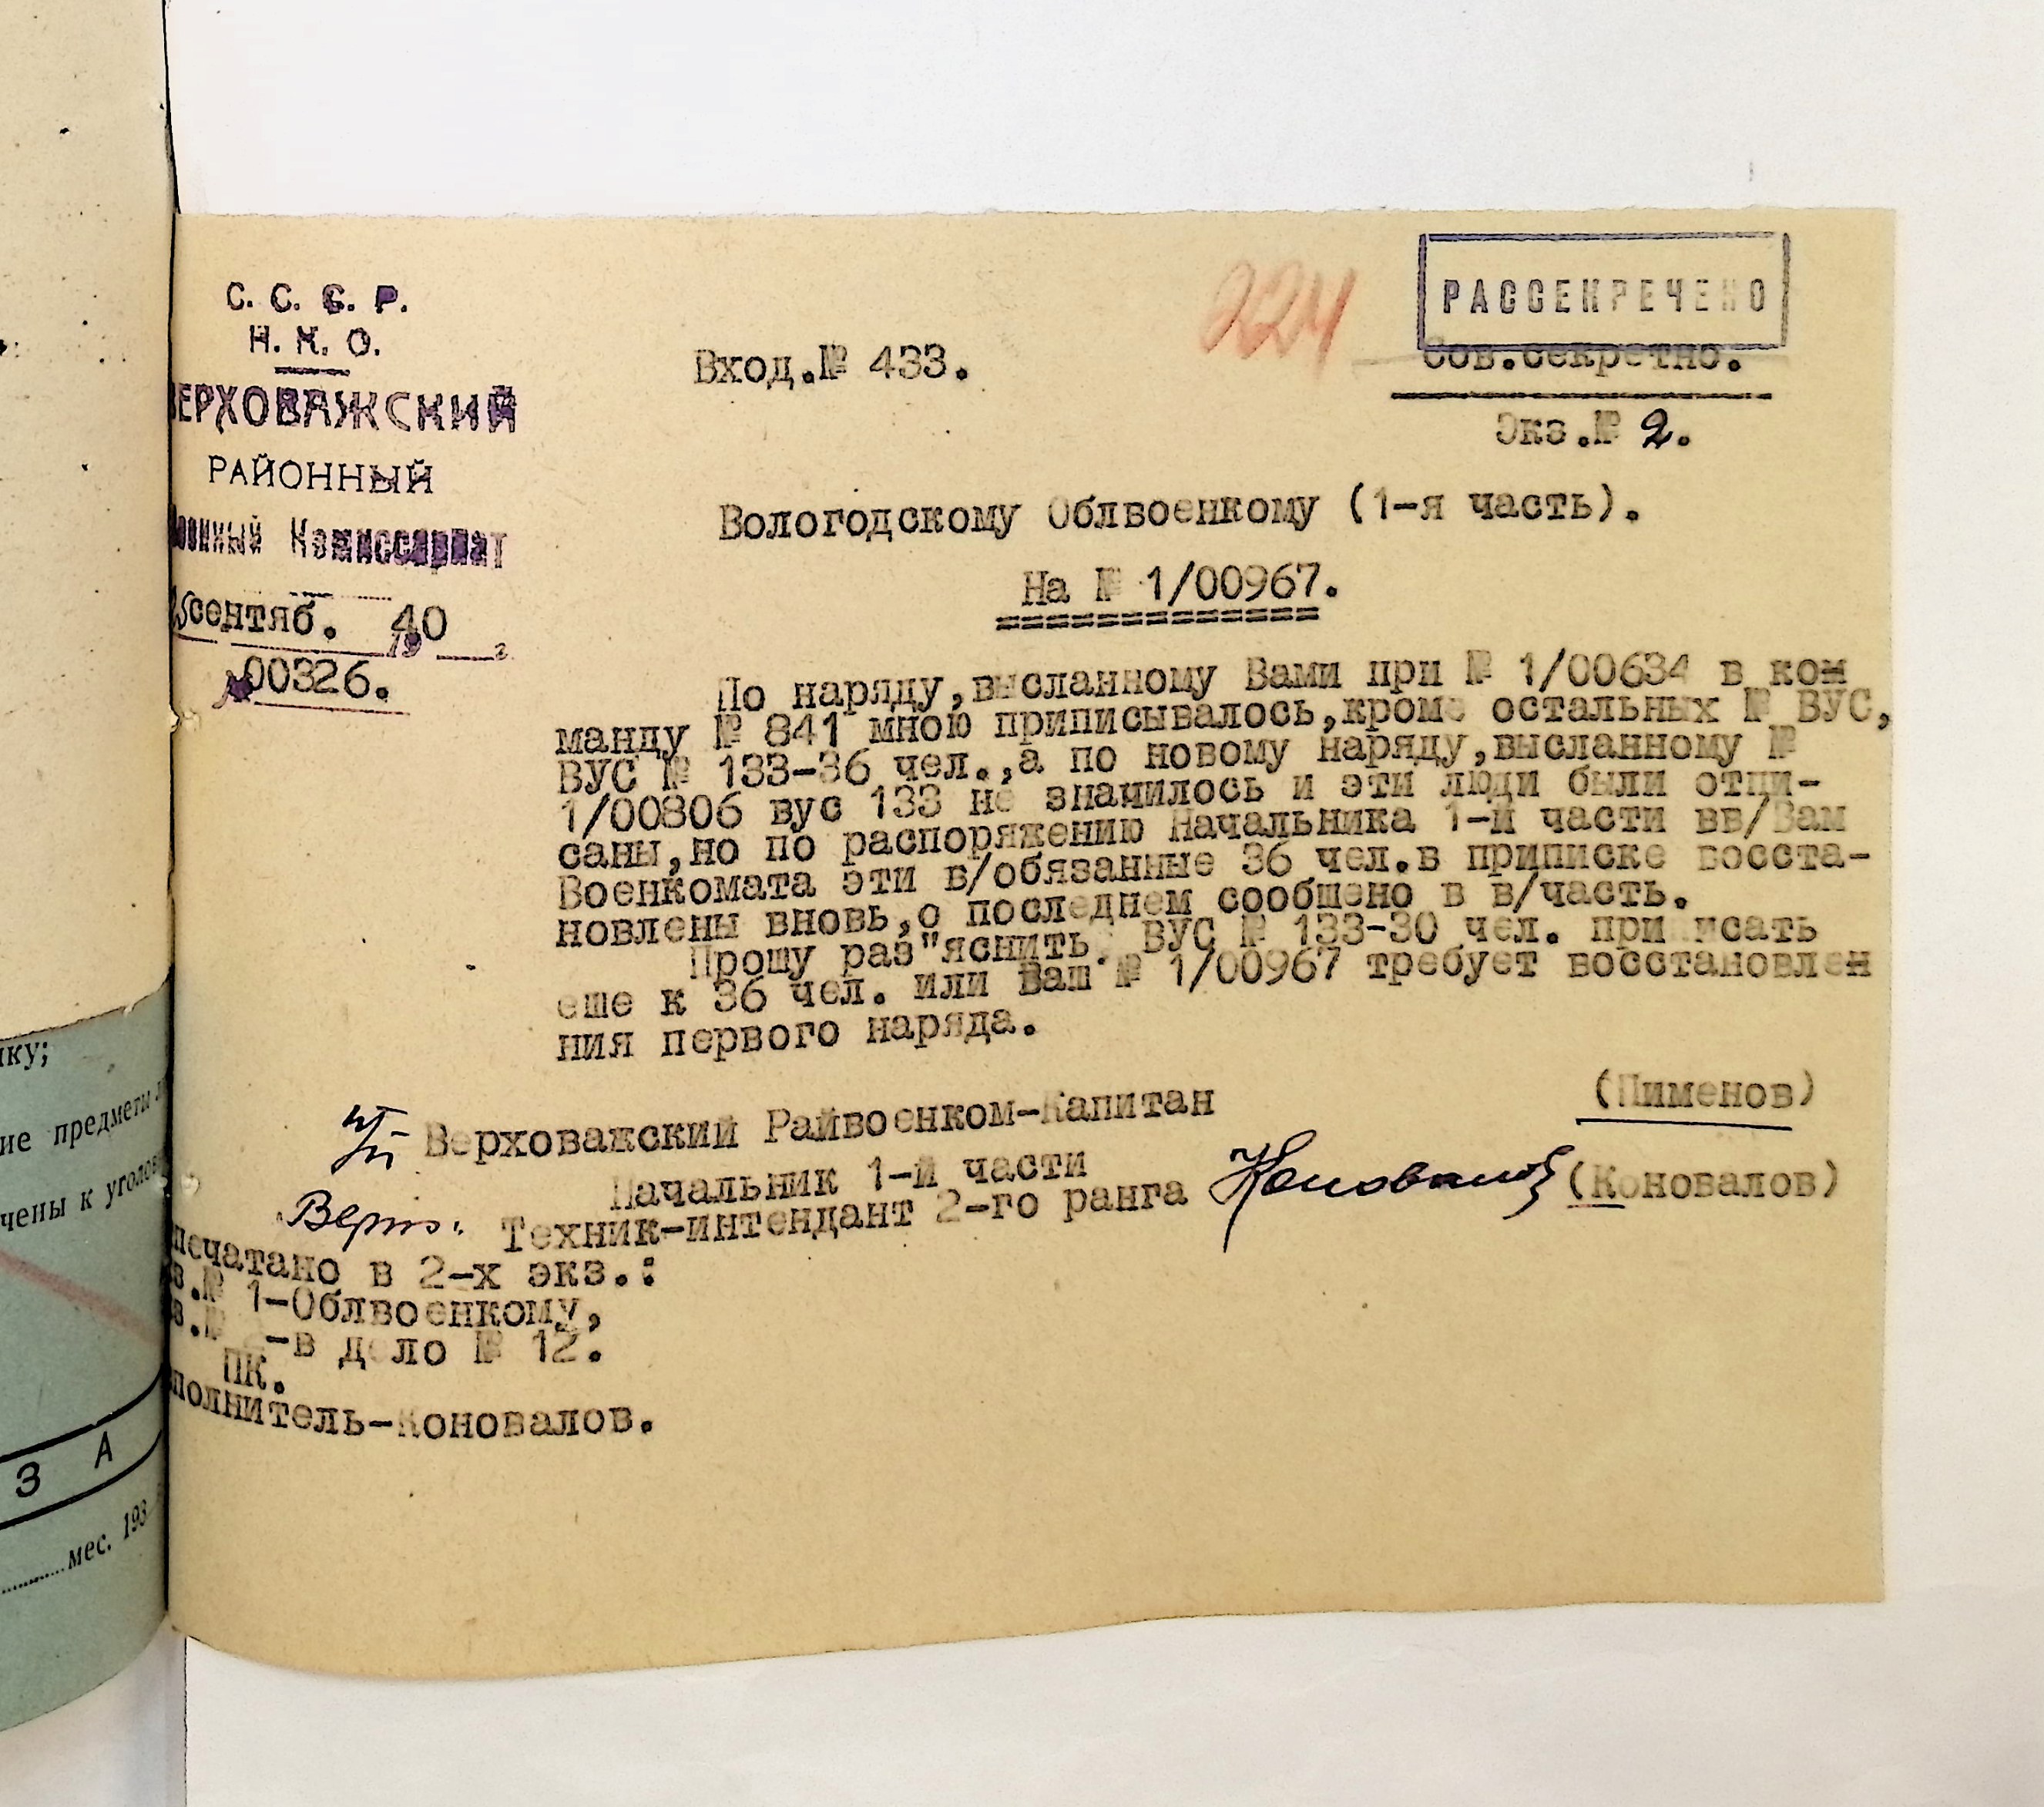 С. С. С. Р.
Н. К. О.
ВЕРХОВАЖСКИЙ
РАЙОННЫЙ
Военный Комиссариат
сентяб. 1940 г.
№ 00326.
Вход.№ 433.
224
РАССЕКРЕЧЕНО
Сов.секретно.
Экз.№ 2.
Вологодскому Облвоенкому (1-я часть).
На № 1/00967.
По наряду,высланному Вами при № 1/00634 в ком
манду № 841 мною приписывалось,кроме остальных № ВУС,
ВУС № 133-36 чел.,а по новому наряду,высланному №
1/00806 вус 133 не значилось и эти люди были отпи-
саны,но по распоряжению Начальника 1-й части вв/Вам
Военкомата эти в/обязанные 36 чел.в приписке восста-
новлены вновь,о последнем сообшено в в/часть.
Прошу раз"яснить: ВУС № 133-30 чел. приписать
еше к 36 чел. или Ваш № 1/00967 требует восстановлен
ния первого наряда.
Верховажский Райвоенком-Капитан (Пименов)
Начальник 1-й части
Верно: Техник-интендант 2-го ранга Коновалов (Коновалов)
печатано в 2-х экз.:
з.№ 1-Облвоенкому,
з.№ -в дело № 12.
ПК.
полнитель-Коновалов.
ику;
ие предметы
чены к уголов
З А
мес. 193